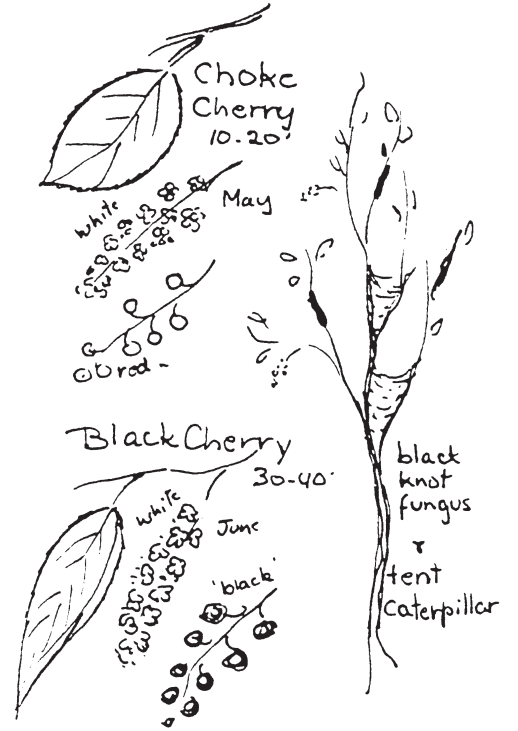 Choke
Cherry
10-20'
white
May
red -
Black Cherry
30-40'
white
June
'black'
black
knot
fungus
&
tent
caterpillar